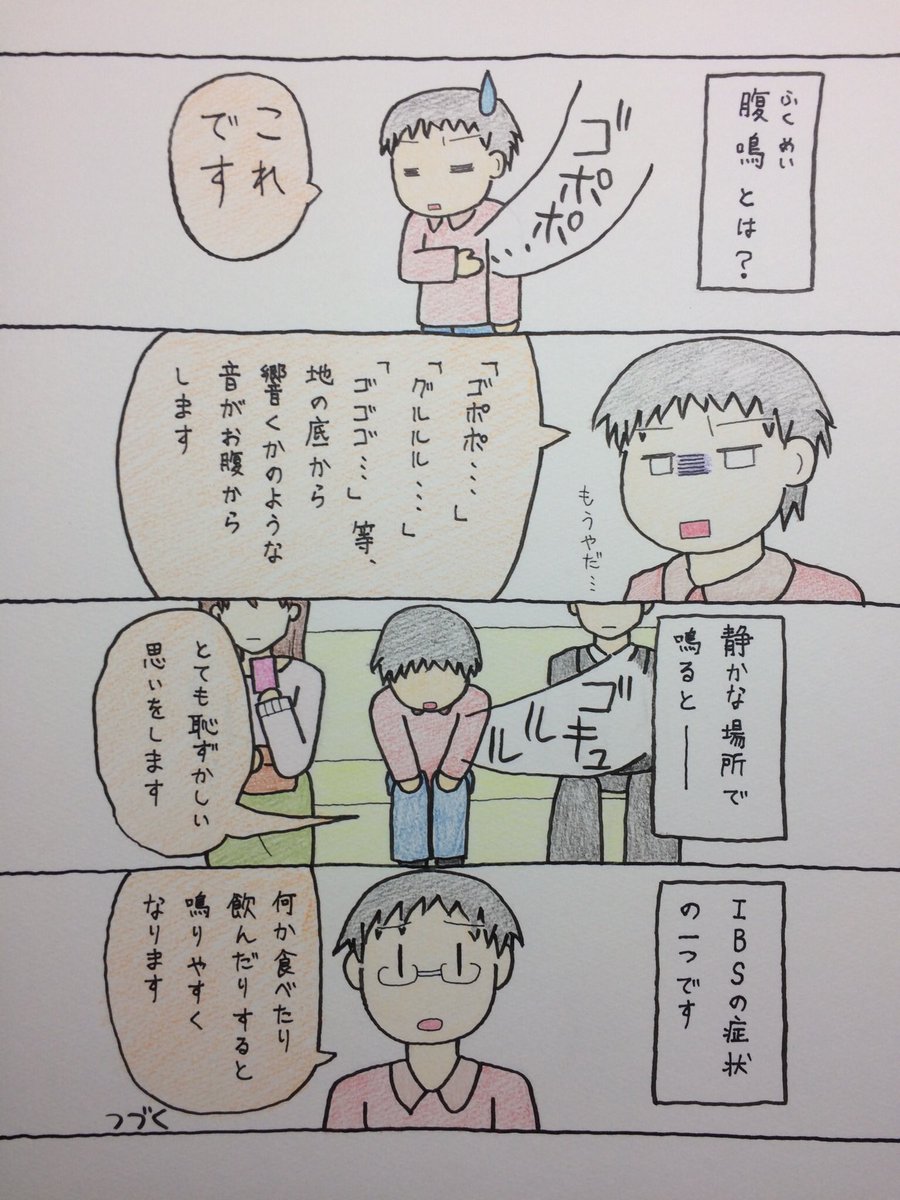 ふくめい
腹鳴とは？
ゴポポ…
これ
です
「ゴポポ…」
「グルルル…」
「ゴゴゴ…」等、
地の底から
響くかのような
音がお腹から
します
もうやだ…
静かな場所で
鳴ると――
ゴキュルル
とても恥ずかしい
思いをします
IBSの症状
の一つです
何か食べたり
飲んだりすると
鳴りやすく
なります
つづく